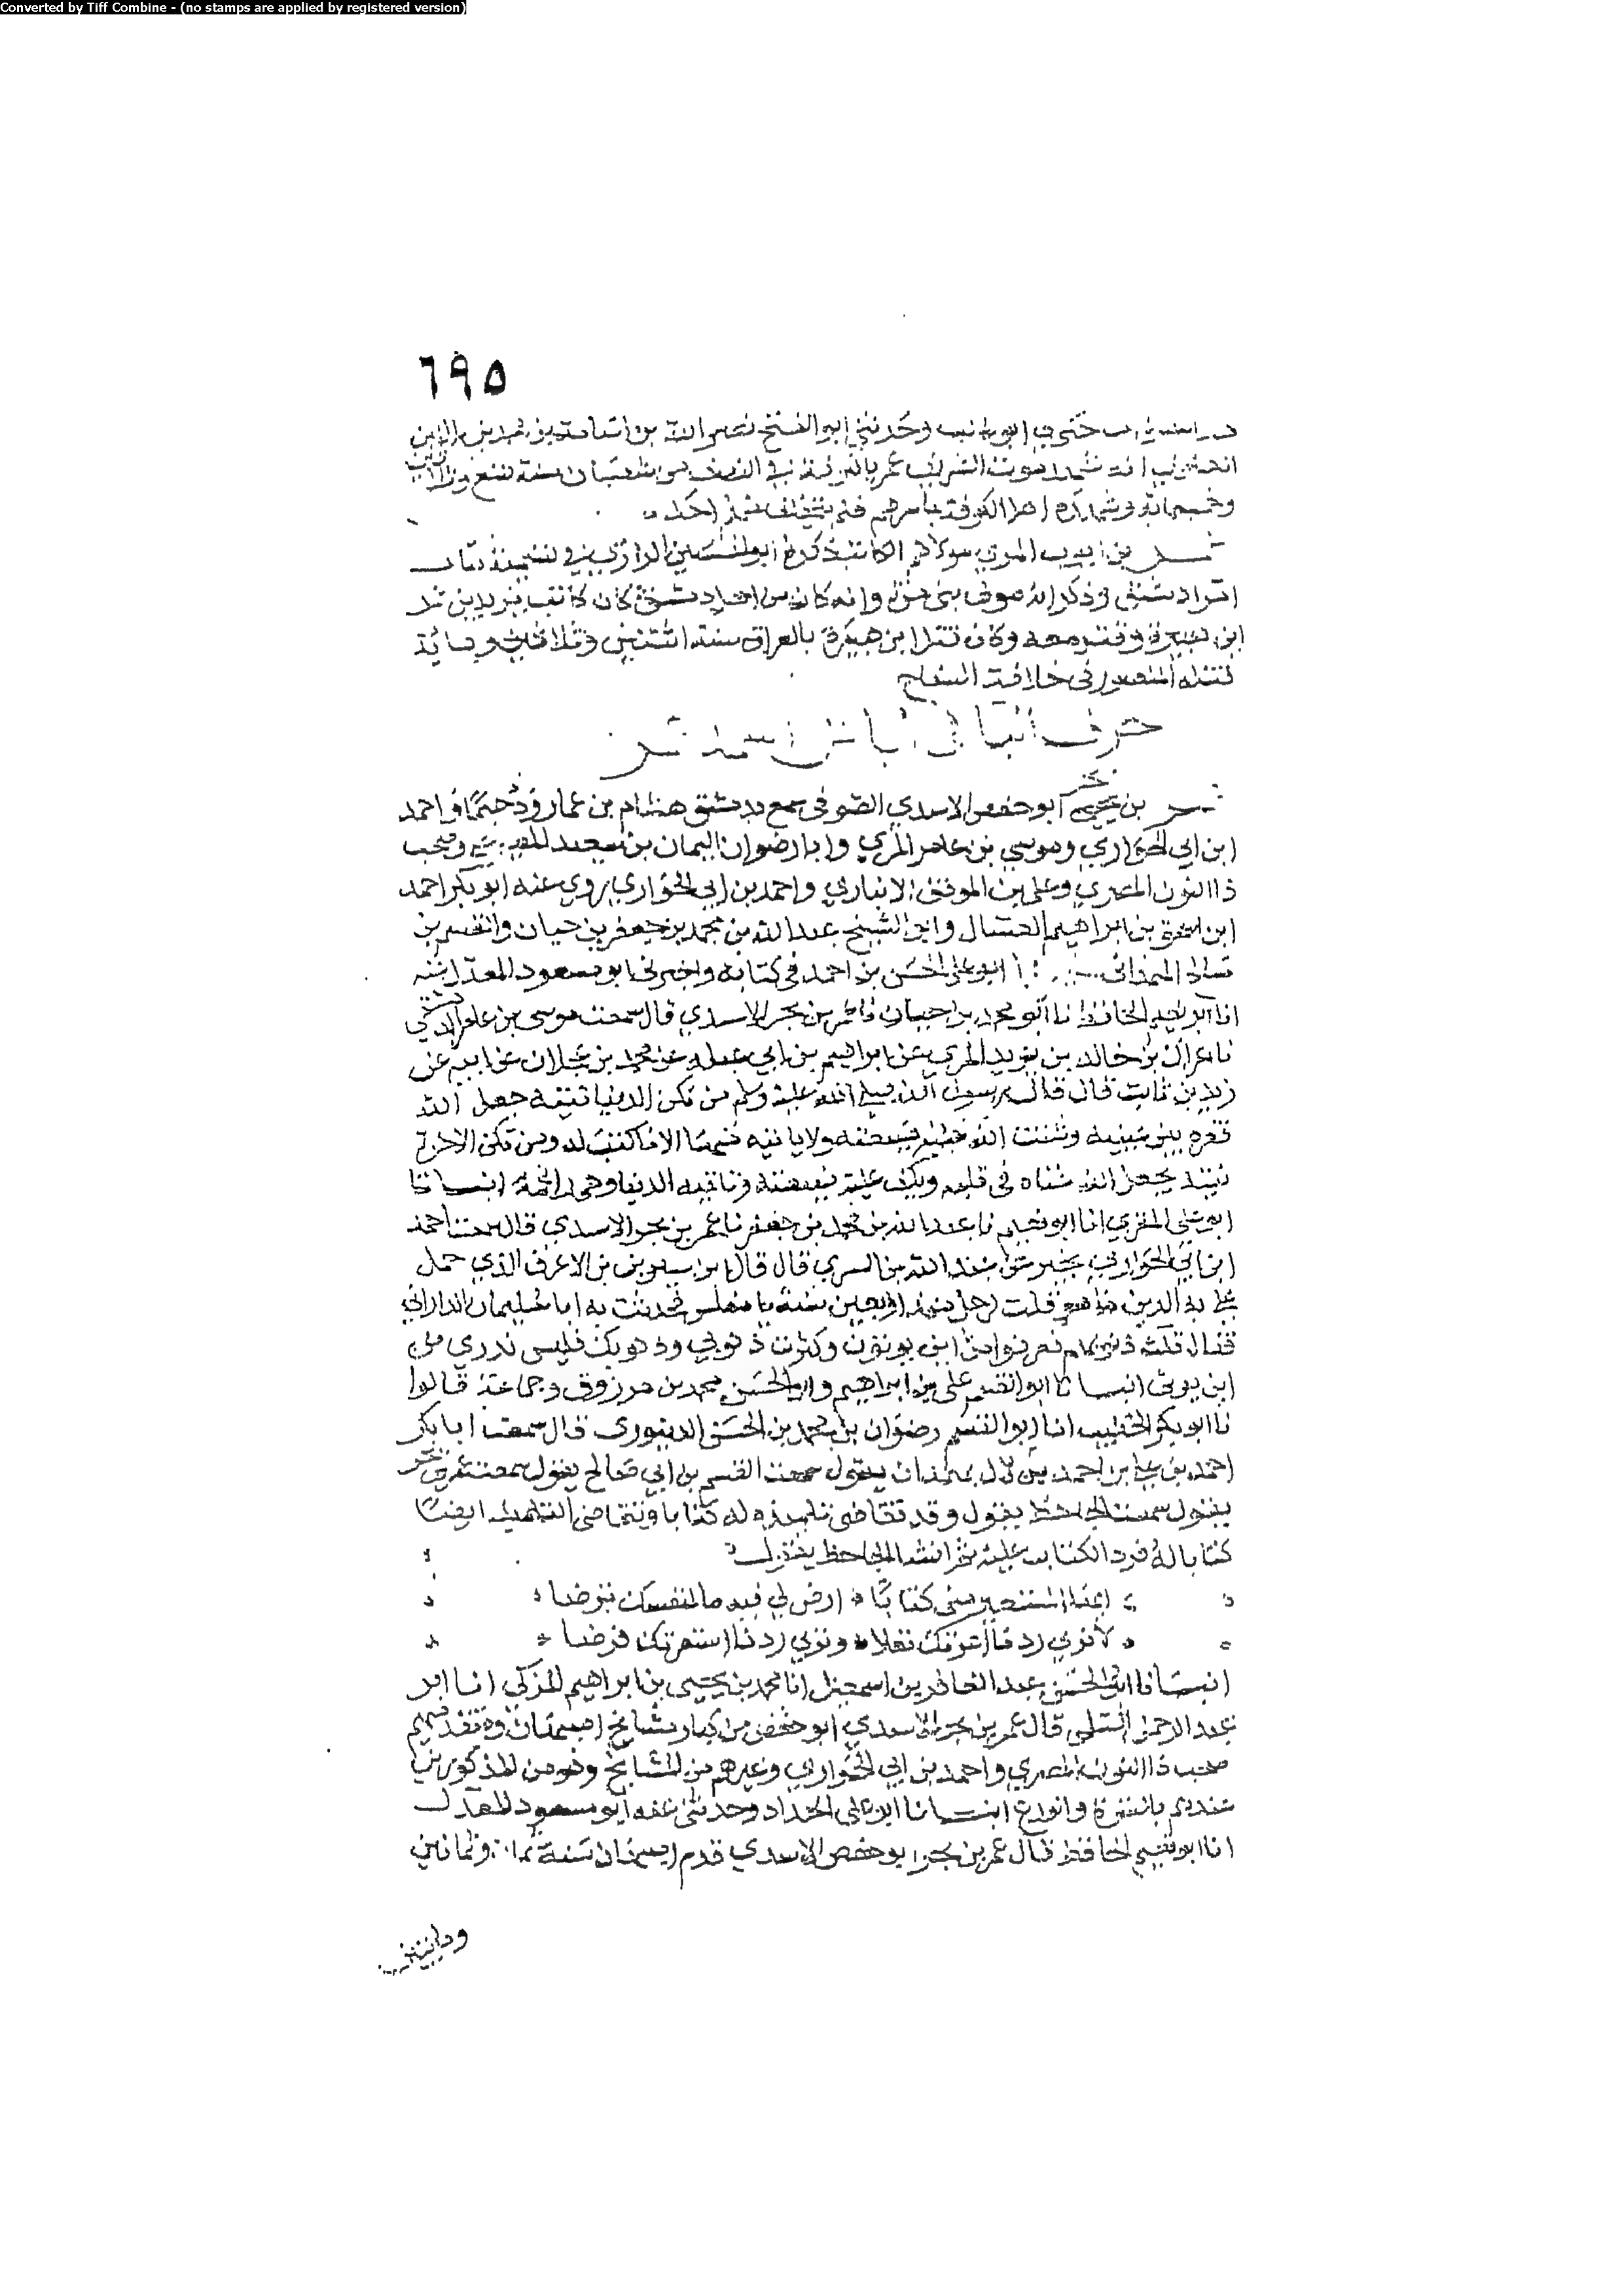 Converted by Tiff Combine - (no stamps are applied by registered version)
٦٩٥
وحدثني ابو الفتح نصر الله بن
انه شهد موت الشريف عمر بالكوفة في النصف من شعبان سنة تسع وثلاثين
وخمسمائة وشهده اهل الكوفة باسرهم فلم يتخلف منهم احد
عمر بن ايوب المري مولاهم الكاتب ذكره ابو الحسين الرازي في تسمية كتاب
امراء دمشق وذكر انه مولى بني مرة وانه كان من اهل دمشق كان كاتب يزيد بن عمر
ابن هبيرة وقتل معه وكان قتل ابن هبيرة بالعراق سنة اثنتين وثلاثين ومائة
قتله المنصور في خلافة السفاح
حرف البا في ابا من اسمه عمر
عمر بن بحر ابو حفص الاسدي الصوفي سمع بدمشق هشام بن عمار ودحيمًا واحمد
ابن ابي الحواري وموسى بن عامر المري وابا رضوان اليمان بن سعيد وصحب
ذا النون المصري وعلي بن الموفق الانباري واحمد بن ابي الحواري روى عنه ابو بكر احمد
ابن اسحق بن ابراهيم العسال وابو الشيخ عبد الله بن محمد بن جعفر بن حيان والقسم بن
ابو علي الحسن بن احمد في كتابه واخبرني ابو مسعود المعدل عنه
انا ابو نعيم الحافظ نا ابو محمد بن حيان نا عمر بن بحر الاسدي قال سمعت موسى بن عامر الدمشقي
نا عراك بن خالد بن يزيد المري عن ابراهيم بن ابي عبلة عن محمد بن عجلان عن ابيه عن
زيد بن ثابت قال قال رسول الله صلى الله عليه وسلم من تكن الدنيا نيته جعل الله
فقره بين عينيه وشتت الله عليه ضيعته ولا ياتيه منها الا ما كتب له ومن تكن الاخرة
نيته يجعل الله غناه في قلبه ويكف عليه ضيعته وتاتيه الدنيا وهي راغمة انبانا
ابو علي المقري انا ابو نعيم نا عبد الله بن محمد بن جعفر نا عمر بن بحر الاسدي قال سمعت احمد
ابن ابي الحواري عبد الله بن السري قال قال ابن سيرين الاعرف الذي حمل
علي به الدين ما هو قلت لرجل منذ اربعين سنة يا مفلس فحدثت به ابا سليمان الداراني
فقال قلت ذنوبهم فعرفوا من اين يوتون وكثرت ذنوبي وذنوبك فليس ندري من
اين يوتى انبانا ابو القسم علي بن ابراهيم وابو الحسن محمد بن مرزوق وجماعة قالوا
نا ابو بكر الخطيب انا ابو القسم رضوان بن محمد بن الحسن الدينوري قال سمعت ابا بكر
احمد بن علي بن احمد بن لال بهمذان يقول سمعت القسم بن ابي صالح يقول سمعت عمر بن بحر
يقول سمعت الجاحظ يقول وقد تقاضى تلميذه له كتابا وتقاضى التلميذ ايضًا
كتابا له فرد الكتاب عليه ثم انشا الجاحظ يقول
ايها المستعير مني كتابًا ارض لي فيه ما لنفسك ترضا
لا ترى رد ما اعرتك نفلا وترى رد ما استعرتك فرضا
انبانا ابو الحسن عبد الغافر بن اسمعيل انا محمد بن يحيى بن ابراهيم المزكي انا ابو
عبد الرحمن السلمي قال عمر بن بحر الاسدي ابو حفص من كبار مشايخ اصبهان ومتقدميهم
صحب ذا النون المصري واحمد بن ابي الحواري وغيرهم من المشايخ وهو من المذكورين
عندهم والورع انبانا ابو علي الحداد وحدثني عنه ابو مسعود المعدل
انا ابو نعيم الحافظ قال عمر بن بحر ابو حفص الاسدي قدم اصبهان سنة ثمان وثمانين
وماتين